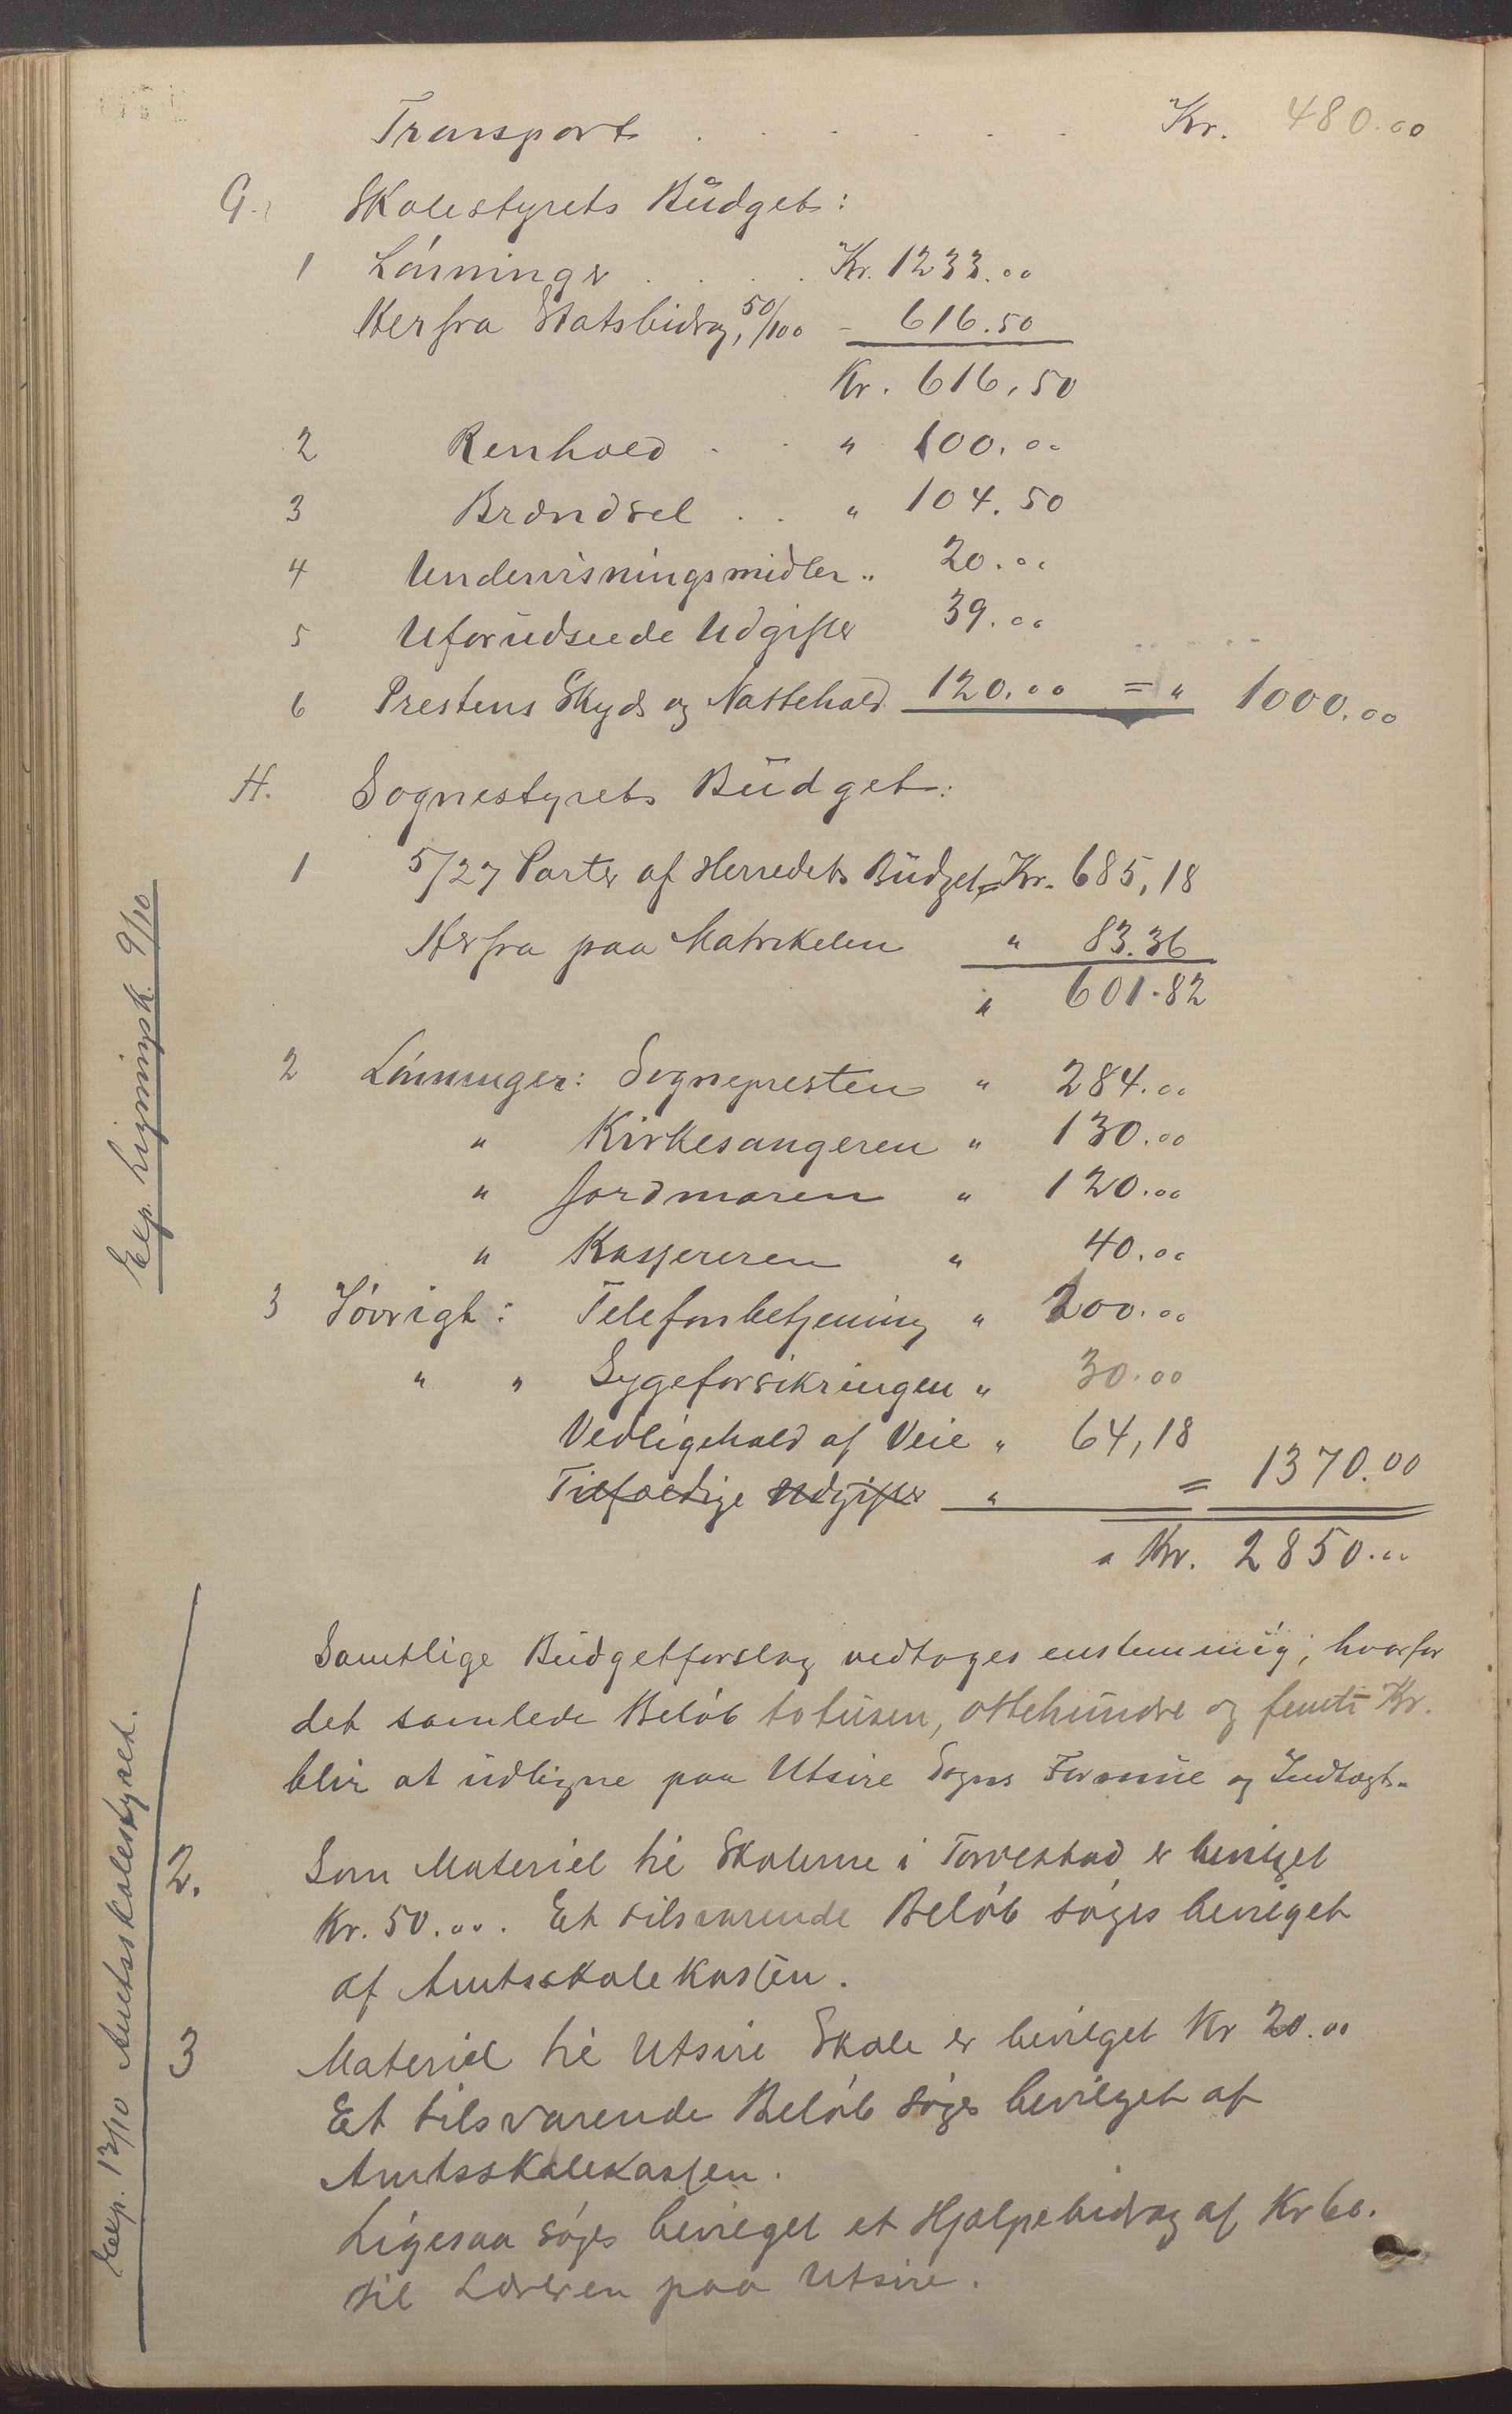 Transport . . . . . . Kr. 480.00
G. Skolestyrets Büdget:
1 Lönninger . . . . Kr. 1233.00
Herfra Statsbidrag, 50/100 - 616.50
Kr. 616,50
2 Renhold . . " 100.00
3 Brændsel . . " 104.50
4 Undervisningsmidler " 20.00
5 Uforüdseede Udgifter 39.00
6 Prestens Skyds og Nattehold 120.00 = " 1000.00
H. Sognestyrets Büdget:
1 5/27 Parter af Herredets Büdget = Kr. 685,18
Herfra paa Matrikelen " 83.36
" 601.82
2 Lönninger: Sognepresten " 284.00
" Kirkesangeren " 130.00
" Jordmoren " 120.00
" Kassereren " 40.00
3 Iövrigt: Telefonbetjening " 200.00
" " Sygeforsikringen " 30.00
Vedligehold af Veie " 64,18
Tilfældige Udgifter " = 1370.00
" Kr. 2850.00
Samtlige Büdgetforslag vedtoges enstemmig; hvorfor
det samlede Belöb totüsen, ottehündre og femti Kr.
blir at üdligne paa Utsire Sogns Formüe og Indtægt.
2. Som Materiel til Skolerne i Torvestad er bevilget
Kr. 50.00. Et tilsvarende Belöb söges bevilget
af Amtsskolekassen.
3 Materiel til Utsire Skole er bevilget Kr 20.00
Et tilsvarende Belöb söges bevilget af
Amtsskolekassen.
Ligesaa söges bevilget et Hjælpebidrag af Kr 60.
til Læreren paa Utsire.
Exp. Ligningsk. 9/10
Exp. 13/10 Amtsskolestyret.